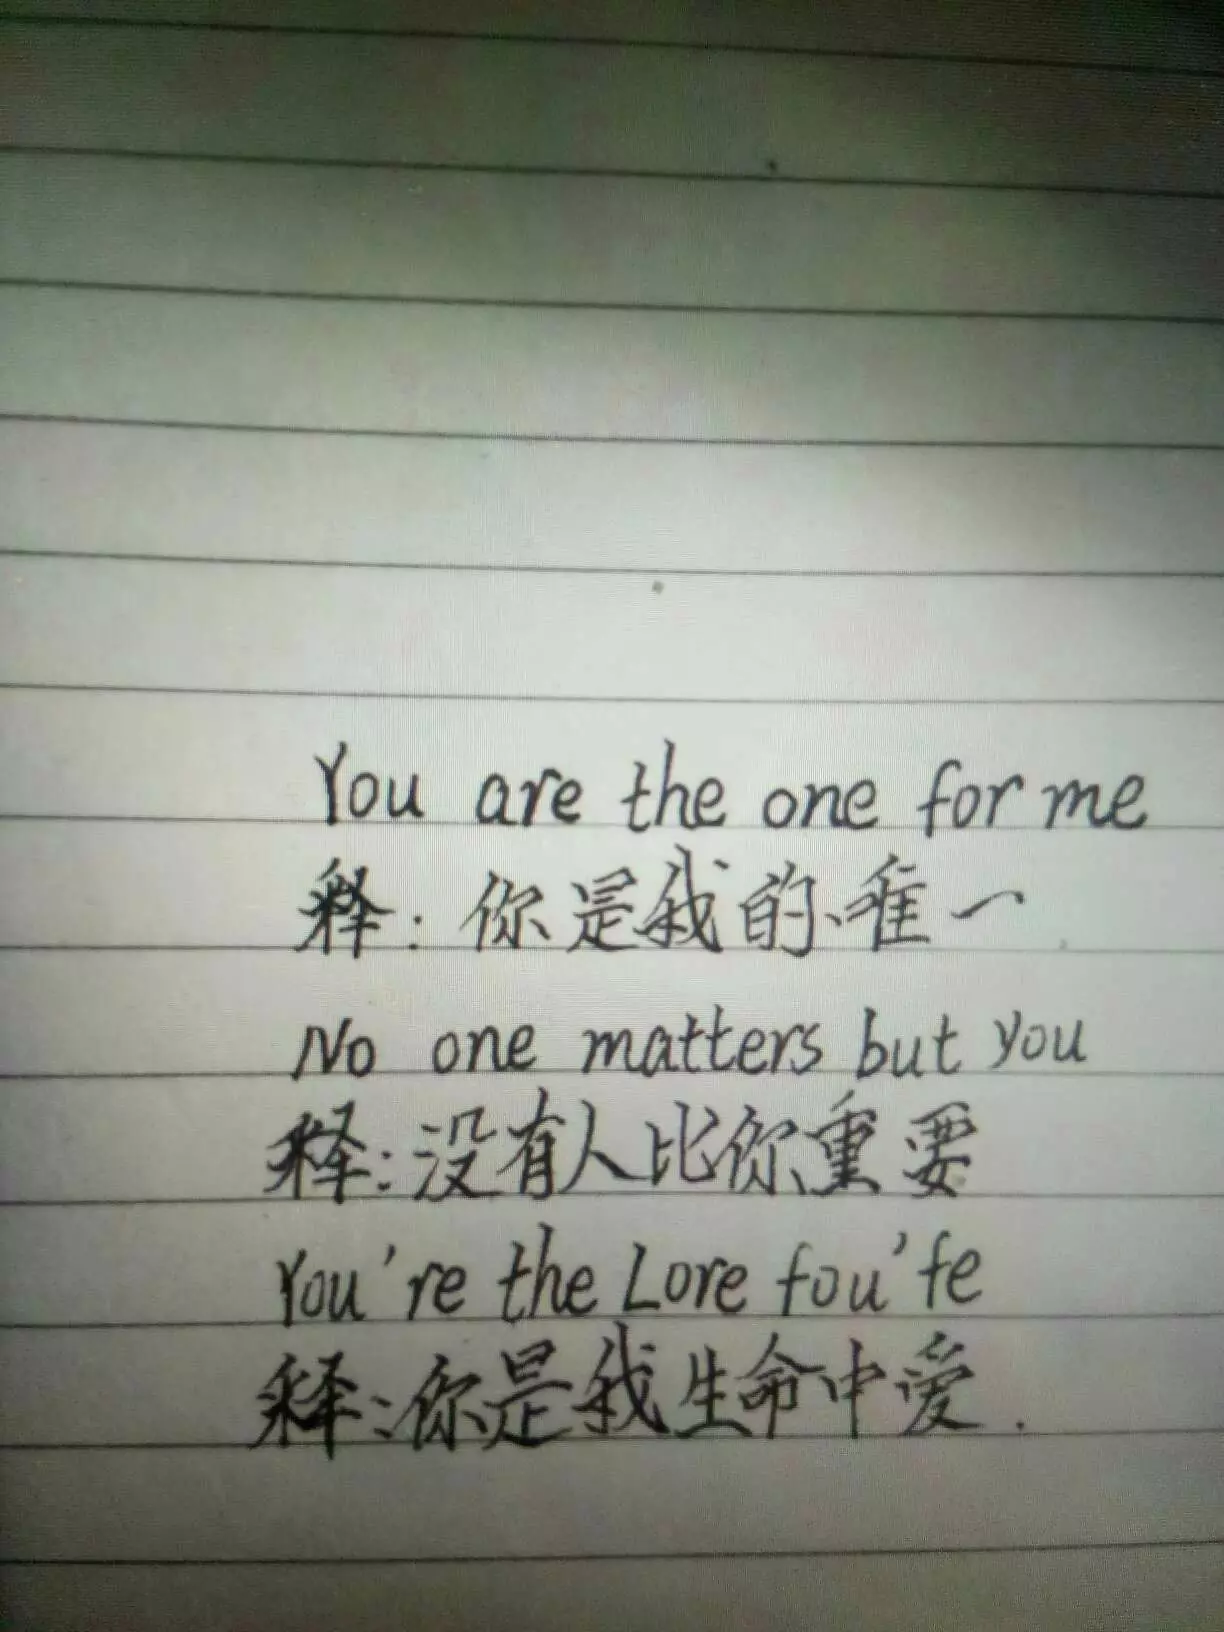 You are the one for me
释：你是我的唯一
No one matters but you
释：没有人比你重要
You're the Lore fou'fe
释：你是我生命中爱.